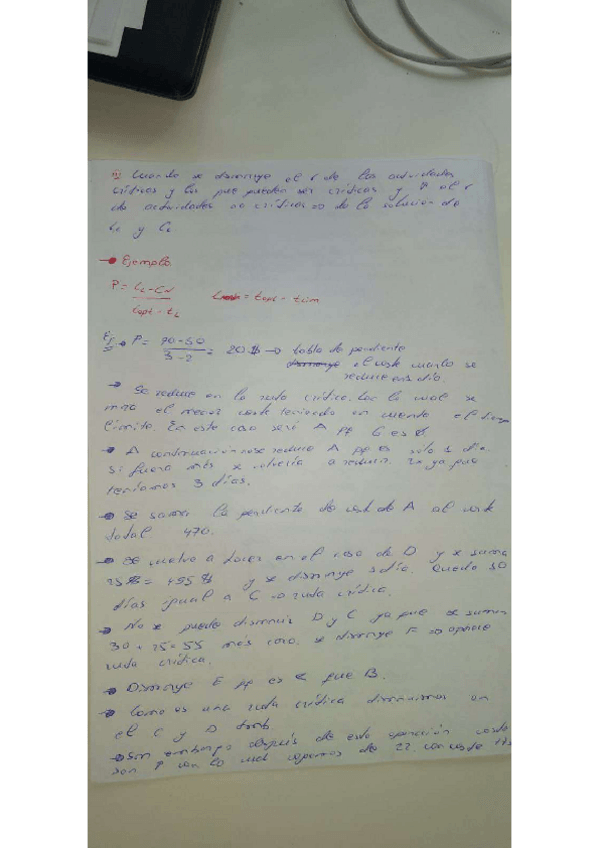 Cuando se disminuye el t de las actividades
críticas y las que pueden ser críticas y ↑ el t
de actividades no críticas => da la solución de
y CL
→ Ejemplo
P = CL - CN / topt - tL topt - tlim
Ej → P = 70-50 / 3-2 = 20 $ → tabla de pendiente
el coste cuando se
reduce en 1 día
→ Se reduce en la ruta crítica, por lo cual se
mira el menor coste teniendo en cuenta el tiempo
límite. En este caso será A pq
→ A continuación se reduce A pq es solo 1 día.
Si fuera más se volvería a reducir ya que
teníamos 3 días.
→ Se suma la pendiente de cost de A al coste
total 470.
→ Se vuelve a hacer en el caso de D y se suma
25 $ = 495 $ y se disminuye 1 día. Queda 30
días igual a C → ruta crítica.
→ No se puede disminuir D y C ya que se suman
30 + 25 = 55 más caro, se disminuye F
ruta crítica.
→ Disminuye E pq es < que B.
→ Como es una ruta crítica disminuimos en
el C y D tamb.
→ Sin embargo después de esta operación
son ↑ con lo cual de 22 con coste